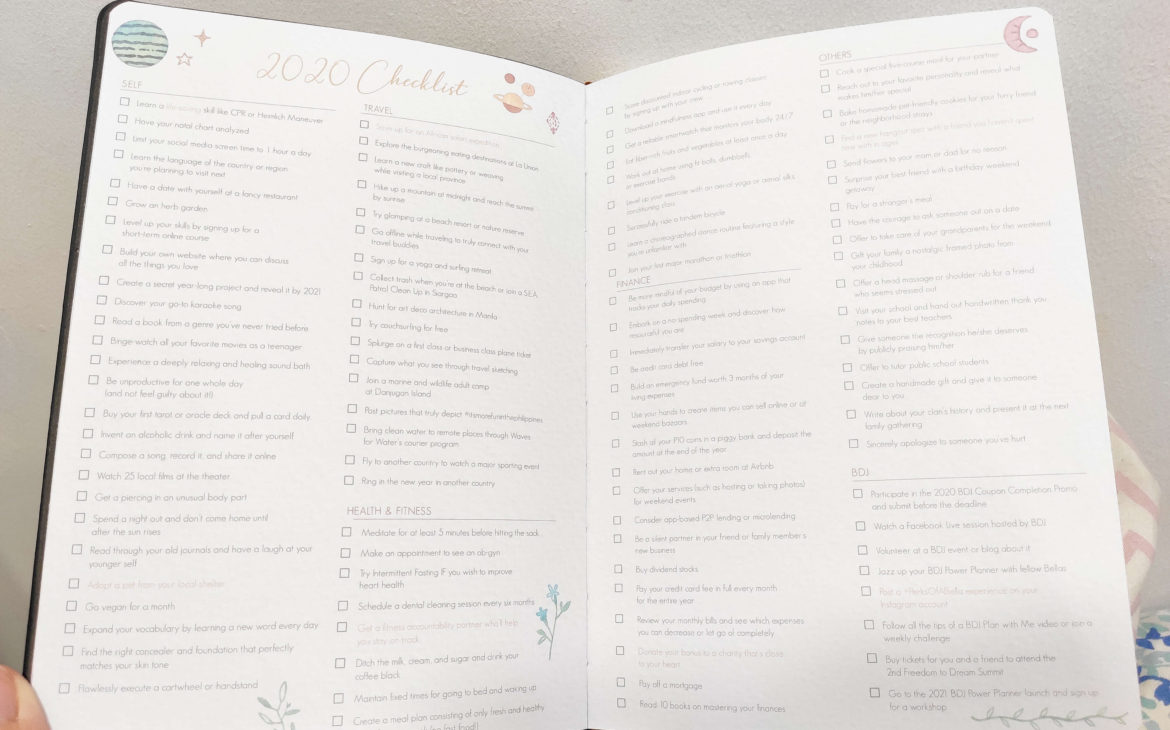 2020 Checklist
SELF
Learn a life-saving skill like CPR or Heimlich Maneuver
Have your natal chart analyzed
Limit your social media screen time to 1 hour a day
Learn the language of the country or region
you're planning to visit next
Have a date with yourself at a fancy restaurant
Grow an herb garden
Level up your skills by signing up for a
short-term online course
Build your own website where you can discuss
all the things you love
Create a secret year long project and reveal it by 2021
Discover your go-to karaoke song
Read a book from a genre you've never tried before
Binge-watch all your favorite movies as a teenager
Experience a deeply relaxing and healing sound bath
Be unproductive for one whole day
(and not feel guilty about it!)
Buy your first tarot or oracle deck and pull a card daily
Invent an alcoholic drink and name it after yourself
Compose a song, record it, and share it online
Watch 25 local films at the theater
Get a piercing in an unusual body part
Spend a night out and don't come home until
after the sun rises
Read through your old journals and have a laugh at your
younger self
Adopt a pet from your local shelter
Go vegan for a month
Expand your vocabulary by learning a new word every day
Find the right concealer and foundation that perfectly
matches your skin tone
Flawlessly execute a cartwheel or handstand
TRAVEL
Save up for an African safari expedition
Explore the burgeoning eating destinations at La Union
Learn a new craft like pottery or weaving
while visiting a local province
Hike up a mountain at midnight and reach the summit
by sunrise
Try glamping at a beach resort or nature reserve
Go offline while traveling to truly connect with your
travel buddies
Sign up for a yoga and surfing retreat
Collect trash when you're at the beach or join a S.E.A.
Patrol Clean Up in Siargao
Hunt for art deco architecture in Manila
Try couchsurfing for free
Splurge on a first class or business class plane ticket
Capture what you see through travel sketching
Join a marine and wildlife adult camp
at Danjugan Island
Post pictures that truly depict #itsmorefuninthephilippines
Bring clean water to remote places through Waves
for Water's courier program
Fly to another country to watch a major sporting event
Ring in the new year in another country
HEALTH & FITNESS
Meditate for at least 5 minutes before hitting the sack
Make an appointment to see an ob-gyn
Try Intermittent Fasting IF you wish to improve
heart health
Schedule a dental cleaning session every six months
Get a fitness accountability partner who'll help
you stay on track
Ditch the milk, cream, and sugar and drink your
coffee black
Maintain fixed times for going to bed and waking up
Create a meal plan consisting of only fresh and healthy
Score discounted indoor cycling or rowing classes
by signing up with your crew
Download a mindfulness app and use it every day
Get a reliable smartwatch that monitors your body 24/7
Eat fiber-rich fruits and vegetables at least once a day
Work out at home using fit balls, dumbbells,
or exercise bands
Level up your exercise with an aerial yoga or aerial silks
conditioning class
Successfully ride a tandem bicycle
Learn a choreographed dance routine featuring a style
you're unfamiliar with
Join your first major marathon or triathlon
FINANCE
Be more mindful of your budget by using an app that
tracks your daily spending
Embark on a no-spending week and discover how
resourceful you are
Immediately transfer your salary to your savings account
Be credit card debt free
Build an emergency fund worth 3 months of your
living expenses
Use your hands to create items you can sell online or at
weekend bazaars
Stash all your P10 coins in a piggy bank and deposit the
amount at the end of the year
Rent out your home or extra room at Airbnb
Offer your services (such as hosting or taking photos)
for weekend events
Consider app-based P2P lending or microlending
Be a silent partner in your friend or family member's
new business
Buy dividend stocks
Pay your credit card fee in full every month
for the entire year
Review your monthly bills and see which expenses
you can decrease or let go of completely
Donate your bonus to a charity that's close
to your heart
Pay off a mortgage
Read 10 books on mastering your finances
OTHERS
Cook a special five-course meal for your partner
Reach out to your favorite personality and reveal what
makes him/her special
Bake homemade pet-friendly cookies for your furry friend
or the neighborhood strays
Find a new hangout spot with a friend you haven't spent
time with in ages
Send flowers to your mom or dad for no reason
Surprise your best friend with a birthday weekend
getaway
Pay for a stranger's meal
Have the courage to ask someone out on a date
Offer to take care of your grandparents for the weekend
Gift your family a nostalgic framed photo from
your childhood
Offer a head massage or shoulder rub for a friend
who seems stressed out
Visit your school and hand out handwritten thank you
notes to your best teachers
Give someone the recognition he/she deserves
by publicly praising him/her
Offer to tutor public school students
Create a handmade gift and give it to someone
dear to you
Write about your clan's history and present it at the next
family gathering
Sincerely apologize to someone you've hurt
BDJ
Participate in the 2020 BDJ Coupon Completion Promo
and submit before the deadline
Watch a Facebook Live session hosted by BDJ
Volunteer at a BDJ event or blog about it
Jazz up your BDJ Power Planner with fellow Bellas
Post a #PerksOfABella experience on your
Instagram account
Follow all the tips of a BDJ Plan with Me video or join a
weekly challenge
Buy tickets for you and a friend to attend the
2nd Freedom to Dream Summit
Go to the 2021 BDJ Power Planner launch and sign up
for a workshop